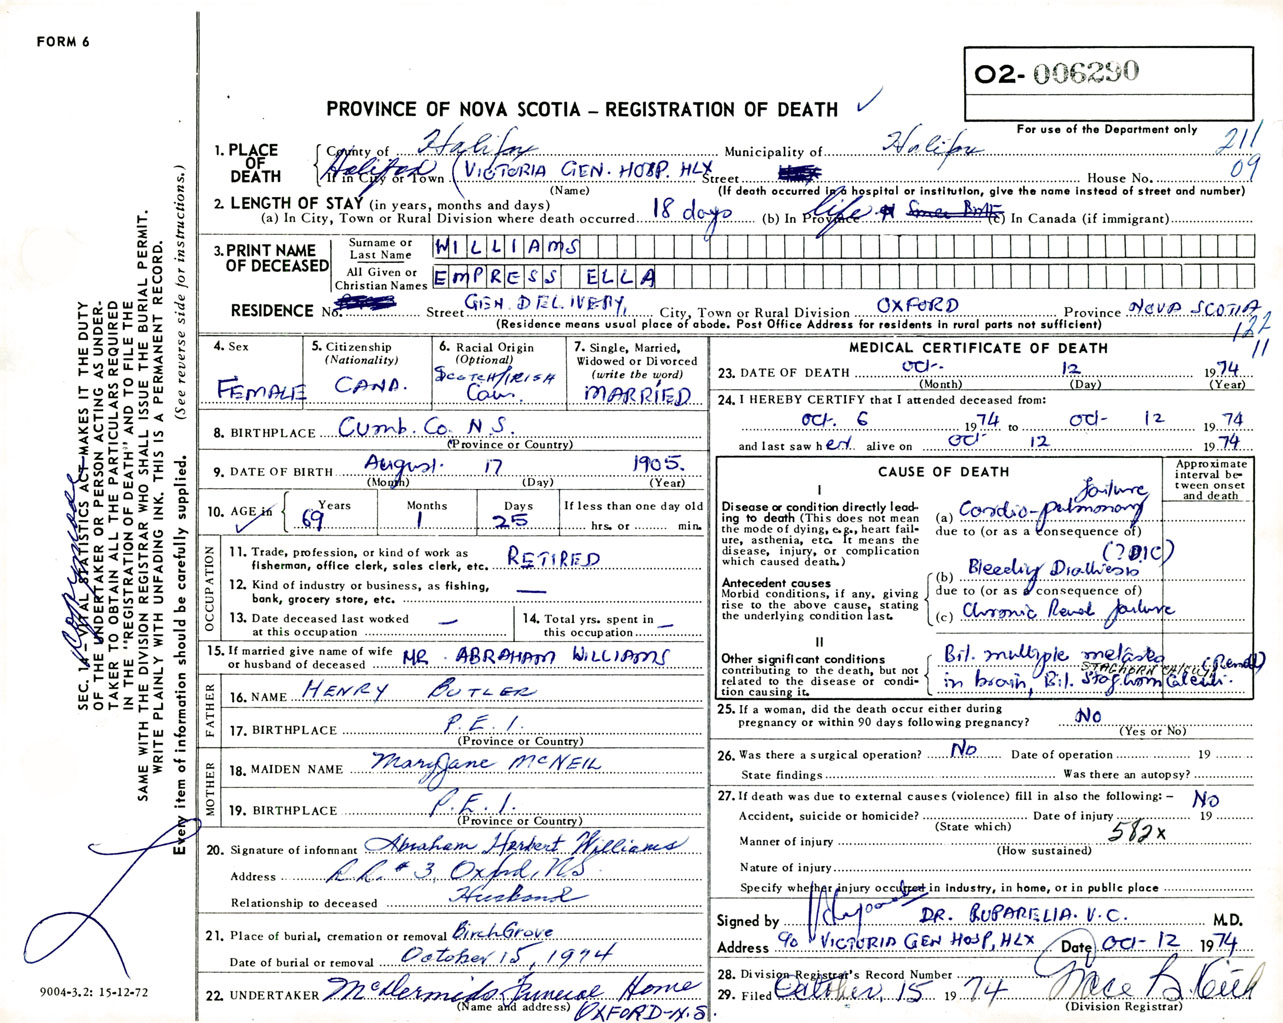 FORM 6
O2- 006290
PROVINCE OF NOVA SCOTIA – REGISTRATION OF DEATH ✓
For use of the Department only
211
09
1. PLACE OF DEATH
County of Halifax Municipality of Halifax
Halifax (VICTORIA GEN. HOSP. HLX
If in City or Town Street House No.
(Name) (If death occurred in a hospital or institution, give the name instead of street and number)
2. LENGTH OF STAY (in years, months and days)
(a) In City, Town or Rural Division where death occurred 18 days (b) In Province life (c) In Canada (if immigrant)
3. PRINT NAME OF DECEASED
Surname or Last Name WILLIAMS
All Given or Christian Names EMPRESS ELLA
RESIDENCE No. Street GEN. DELIVERY, City, Town or Rural Division OXFORD Province NOVA SCOTIA
(Residence means usual place of abode. Post Office Address for residents in rural parts not sufficient)
122
11
4. Sex
FEMALE
5. Citizenship
(Nationality)
CANA.
6. Racial Origin
(Optional)
SCOTCH/IRISH
Cau.
7. Single, Married,
Widowed or Divorced
(write the word)
MARRIED
8. BIRTHPLACE Cumb. Co. N.S.
(Province or Country)
9. DATE OF BIRTH August 17 1905.
(Month) (Day) (Year)
10. AGE in ✓ Years 69 Months 1 Days 25
If less than one day old
hrs. or min.
OCCUPATION
11. Trade, profession, or kind of work as
fisherman, office clerk, sales clerk, etc. RETIRED
12. Kind of industry or business, as fishing,
bank, grocery store, etc. —
13. Date deceased last worked
at this occupation —
14. Total yrs. spent in
this occupation —
15. If married give name of wife
or husband of deceased MR. ABRAHAM WILLIAMS
FATHER
16. NAME HENRY BUTLER
17. BIRTHPLACE P.E.I.
(Province or Country)
MOTHER
18. MAIDEN NAME Mary Jane McNEIL
19. BIRTHPLACE P.E.I.
(Province or Country)
20. Signature of informant Abraham Herbert Williams
Address R.R. # 3, Oxford, NS
Relationship to deceased Husband
21. Place of burial, cremation or removal Birch Grove
Date of burial or removal October 15, 1974
22. UNDERTAKER McDermids Funeral Home
(Name and address) OXFORD-N.S.
MEDICAL CERTIFICATE OF DEATH
23. DATE OF DEATH Oct. 12 1974
(Month) (Day) (Year)
24. I HEREBY CERTIFY that I attended deceased from:
Oct. 6 1974 to Oct- 12 1974
and last saw her alive on Oct 12 1974
CAUSE OF DEATH
Approximate interval between onset and death
I
Disease or condition directly lead-
ing to death (This does not mean
the mode of dying, e.g., heart fail-
ure, asthenia, etc. It means the
disease, injury, or complication
which caused death.)
(a) Cardio-pulmonary failure
due to (or as a consequence of)
Antecedent causes
Morbid conditions, if any, giving
rise to the above cause, stating
the underlying condition last.
(b) Bleeding Diathesis (? DIC)
due to (or as a consequence of)
(c) Chronic Renal failure
II
Other significant conditions
contributing to the death, but not
related to the disease or condi-
tion causing it.
Bil. multiple
STAGHORN CALCULI (Renal)
in brain, Bil. Staghorn Calculi.
25. If a woman, did the death occur either during
pregnancy or within 90 days following pregnancy? No
(Yes or No)
26. Was there a surgical operation? No Date of operation 19
State findings Was there an autopsy?
27. If death was due to external causes (violence) fill in also the following: – No
Accident, suicide or homicide? Date of injury 19
(State which)
Manner of injury 582x
(How sustained)
Nature of injury
Specify whether injury occurred in industry, in home, or in public place
Signed by DR. RUPARELIA. V.C. M.D.
Address % VICTORIA GEN HOSP, HLX Date Oct- 12 1974
28. Division Registrar's Record Number
29. Filed October, 15 1974
(Division Registrar)
SEC. VITAL STATISTICS ACT MAKES IT THE DUTY
OF THE UNDERTAKER OR PERSON ACTING AS UNDER-
TAKER TO OBTAIN ALL THE PARTICULARS REQUIRED
IN THE "REGISTRATION OF DEATH" AND TO FILE THE
SAME WITH THE DIVISION REGISTRAR WHO SHALL ISSUE THE BURIAL PERMIT.
WRITE PLAINLY WITH UNFADING INK. THIS IS A PERMANENT RECORD.
Every item of information should be carefully supplied. (See reverse side for instructions.)
9004-3.2: 15-12-72